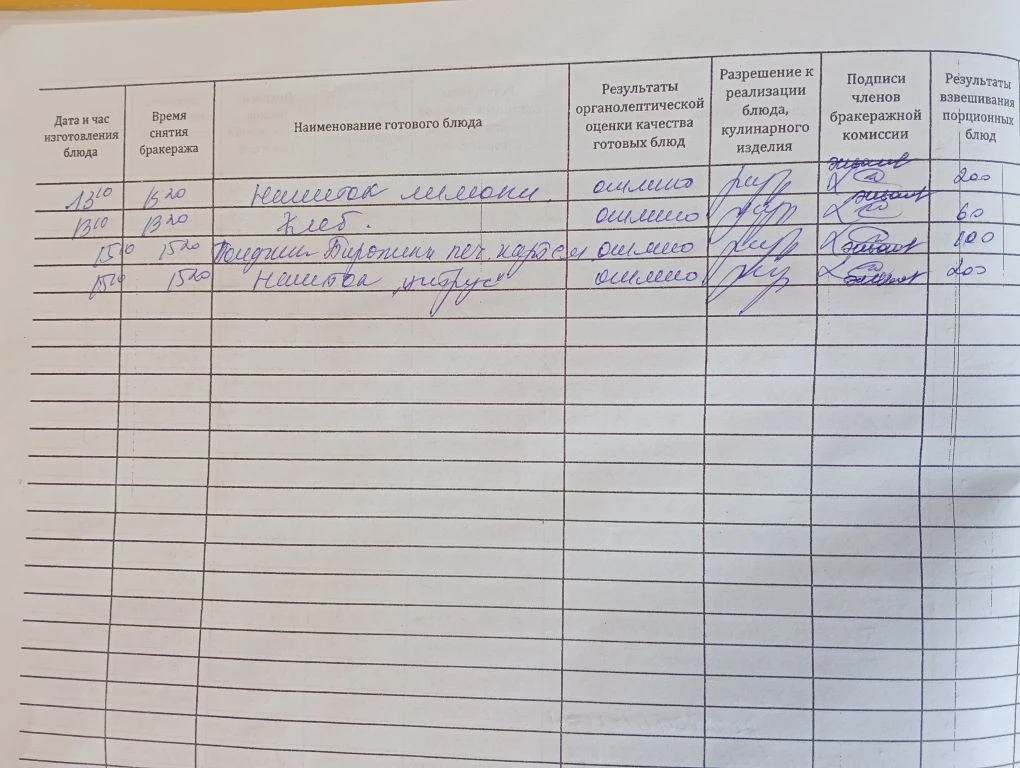 Дата и час изготовления блюда
Время снятия бракеража
Наименование готового блюда
Результаты органолептической оценки качества готовых блюд
Разрешение к реализации блюда, кулинарного изделия
Подписи членов бракеражной комиссии
Результаты взвешивания порционных блюд
13 10 13 20 Напиток лимонн. отлично 200
13 10 13 20 Хлеб. отлично 60
15 10 15 20 Пирожки печ. картоф отлично 100
15 10 15 20 Напиток „цитрус" отлично 200